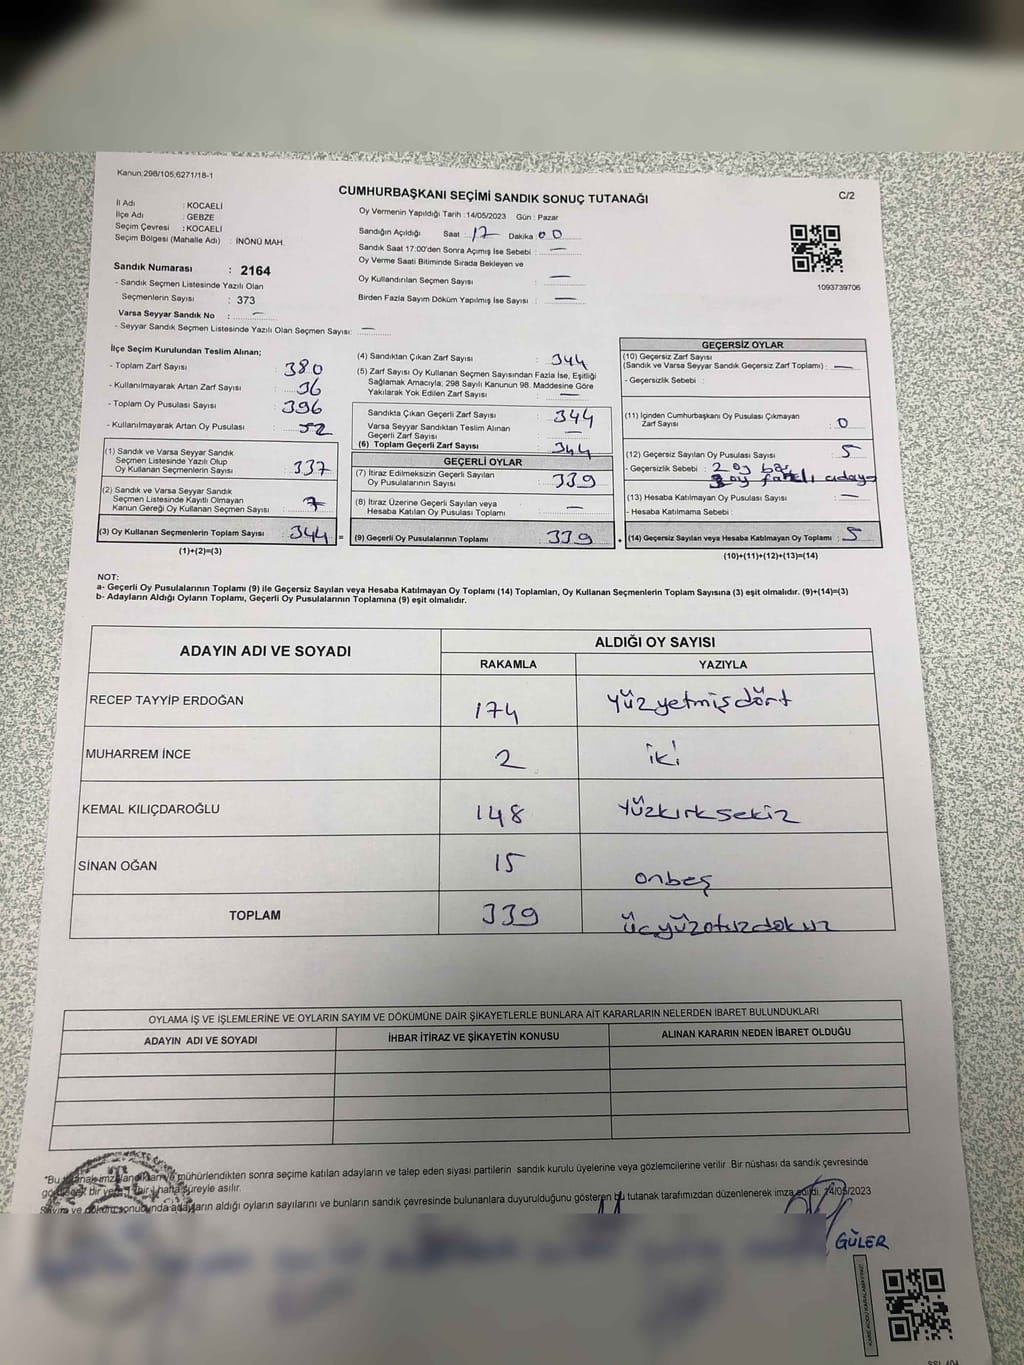 Kanun:298/105;6271/18-1
CUMHURBAŞKANI SEÇİMİ SANDIK SONUÇ TUTANAĞI
C/2
İl Adı : KOCAELİ
İlçe Adı : GEBZE
Seçim Çevresi : KOCAELİ
Seçim Bölgesi (Mahalle Adı) : İNÖNÜ MAH.
Sandık Numarası : 2164
- Sandık Seçmen Listesinde Yazılı Olan
Seçmenlerin Sayısı : 373
Varsa Seyyar Sandık No : —
- Seyyar Sandık Seçmen Listesinde Yazılı Olan Seçmen Sayısı: —
Oy Vermenin Yapıldığı Tarih :14/05/2023 Gün : Pazar
Sandığın Açıldığı Saat : 17 Dakika : 00
Sandık Saat 17:00'den Sonra Açımış İse Sebebi : —
Oy Verme Saati Bitiminde Sırada Bekleyen ve
Oy Kullandırılan Seçmen Sayısı : —
Birden Fazla Sayım Döküm Yapılmış İse Sayısı : —
1093739706
İlçe Seçim Kurulundan Teslim Alınan;
- Toplam Zarf Sayısı : 380
- Kullanılmayarak Artan Zarf Sayısı : 36
- Toplam Oy Pusulası Sayısı : 396
- Kullanılmayarak Artan Oy Pusulası : 52
(1) Sandık ve Varsa Seyyar Sandık
Seçmen Listesinde Yazılı Olup
Oy Kullanan Seçmenlerin Sayısı : 337
(2) Sandık ve Varsa Seyyar Sandık
Seçmen Listesinde Kayıtlı Olmayan
Kanun Gereği Oy Kullanan Seçmen Sayısı : 7
(3) Oy Kullanan Seçmenlerin Toplam Sayısı : 344 =
(1)+(2)=(3)
(4) Sandıktan Çıkan Zarf Sayısı : 344
(5) Zarf Sayısı Oy Kullanan Seçmen Sayısından Fazla İse, Eşitliği
Sağlamak Amacıyla; 298 Sayılı Kanunun 98. Maddesine Göre
Yakılarak Yok Edilen Zarf Sayısı : —
Sandıkta Çıkan Geçerli Zarf Sayısı : 344
Varsa Seyyar Sandıktan Teslim Alınan
Geçerli Zarf Sayısı : —
(6) Toplam Geçerli Zarf Sayısı : 344
GEÇERLİ OYLAR
(7) İtiraz Edilmeksizin Geçerli Sayılan
Oy Pusulalarının Sayısı : 339
(8) İtiraz Üzerine Geçerli Sayılan veya
Hesaba Katılan Oy Pusulası Toplamı : —
(9) Geçerli Oy Pusulalarının Toplamı : 339 +
GEÇERSİZ OYLAR
(10) Geçersiz Zarf Sayısı
(Sandık ve Varsa Seyyar Sandık Geçersiz Zarf Toplamı) : —
- Geçersizlik Sebebi :
(11) İçinden Cumhurbaşkanı Oy Pusulası Çıkmayan
Zarf Sayısı : 0
(12) Geçersiz Sayılan Oy Pusulası Sayısı : 5
- Geçersizlik Sebebi : 2 oy boş
3 oy farklı adaya
(13) Hesaba Katılmayan Oy Pusulası Sayısı : —
- Hesaba Katılmama Sebebi :
(14) Geçersiz Sayılan veya Hesaba Katılmayan Oy Toplamı : 5
(10)+(11)+(12)+(13)=(14)
NOT:
a- Geçerli Oy Pusulalarının Toplamı (9) ile Geçersiz Sayılan veya Hesaba Katılmayan Oy Toplamı (14) Toplamları, Oy Kullanan Seçmenlerin Toplam Sayısına (3) eşit olmalıdır. (9)+(14)=(3)
b- Adayların Aldığı Oyların Toplamı, Geçerli Oy Pusulalarının Toplamına (9) eşit olmalıdır.
ADAYIN ADI VE SOYADI ALDIĞI OY SAYISI
RAKAMLA YAZIYLA
RECEP TAYYİP ERDOĞAN 174 yüzyetmişdört
MUHARREM İNCE 2 iki
KEMAL KILIÇDAROĞLU 148 yüzkırksekiz
SİNAN OĞAN 15 onbeş
TOPLAM 339 üçyüzotuzdokuz
OYLAMA İŞ VE İŞLEMLERİNE VE OYLARIN SAYIM VE DÖKÜMÜNE DAİR ŞİKAYETLERLE BUNLARA AİT KARARLARIN NELERDEN İBARET BULUNDUKLARI
ADAYIN ADI VE SOYADI İHBAR İTİRAZ VE ŞİKAYETİN KONUSU ALINAN KARARIN NEDEN İBARET OLDUĞU
*Bu tutanak imzalandıktan ve mühürlendikten sonra seçime katılan adayların ve talep eden siyasi partilerin sandık kurulu üyelerine veya gözlemcilerine verilir .Bir nüshası da sandık çevresinde
bir yere 1 (bir) hafta süreyle asılır.
Sayım ve döküm sonucunda adayların aldığı oyların sayılarını ve bunların sandık çevresinde bulunanlara duyurulduğunu gösteren bu tutanak tarafımızdan düzenlenerek imza edildi. 14/05/2023
GÜLER